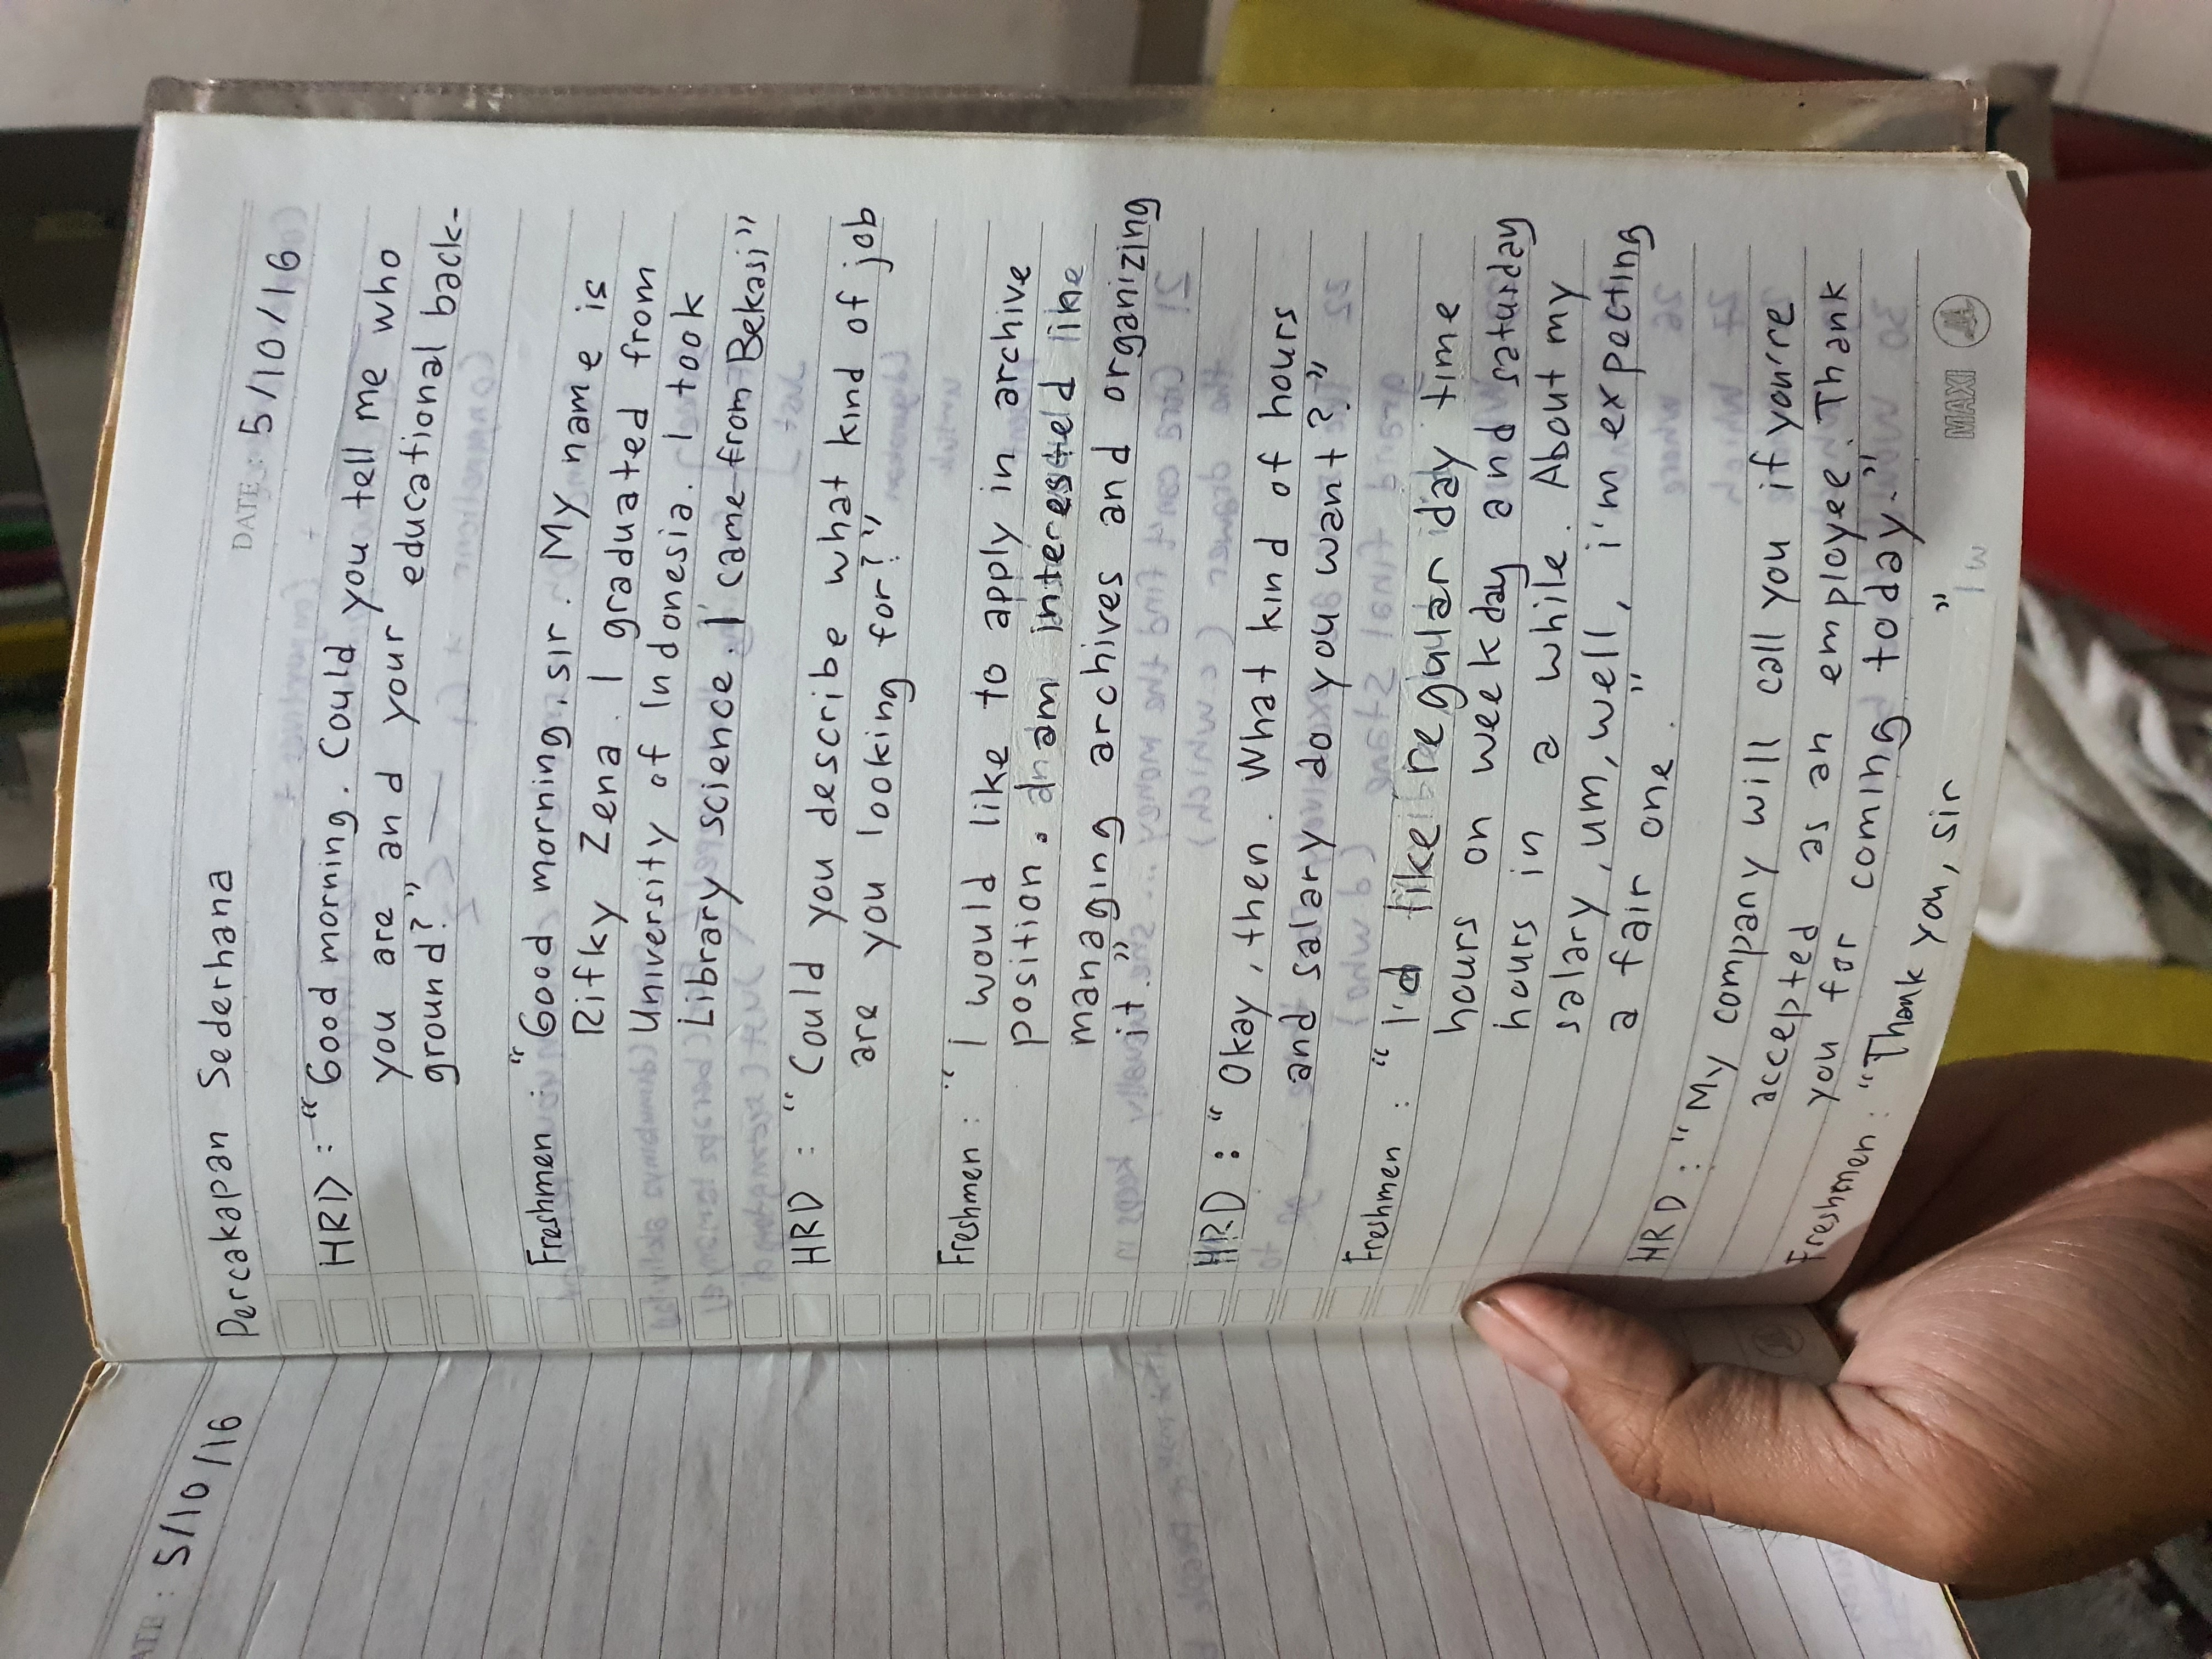 DATE : 5/10/16
Percakapan Sederhana
DATE : 5/10/16
HRD : "Good morning. Could you tell me who
you are and your educational back-
ground?"
Freshmen "Good morning, sir. My name is
Rifky Zena. I graduated from
University of Indonesia. I took
Library science. I came from Bekasi"
HRD : "Could you describe what kind of job
are you looking for?"
Freshmen : "I would like to apply in archive
position. am interested like
managing archives and organizing
it."
HRD : "Okay, then. What kind of hours
and salary do you want?"
Freshmen : "I'd like regular day time
hours on weekday and saturday
hours in a while. About my
salary, um, well, i'm expecting
a fair one."
HRD : "My company will call you if you're
accepted as an employee. Thank
you for coming today."
Freshmen : "Thank you, sir"
MAXI